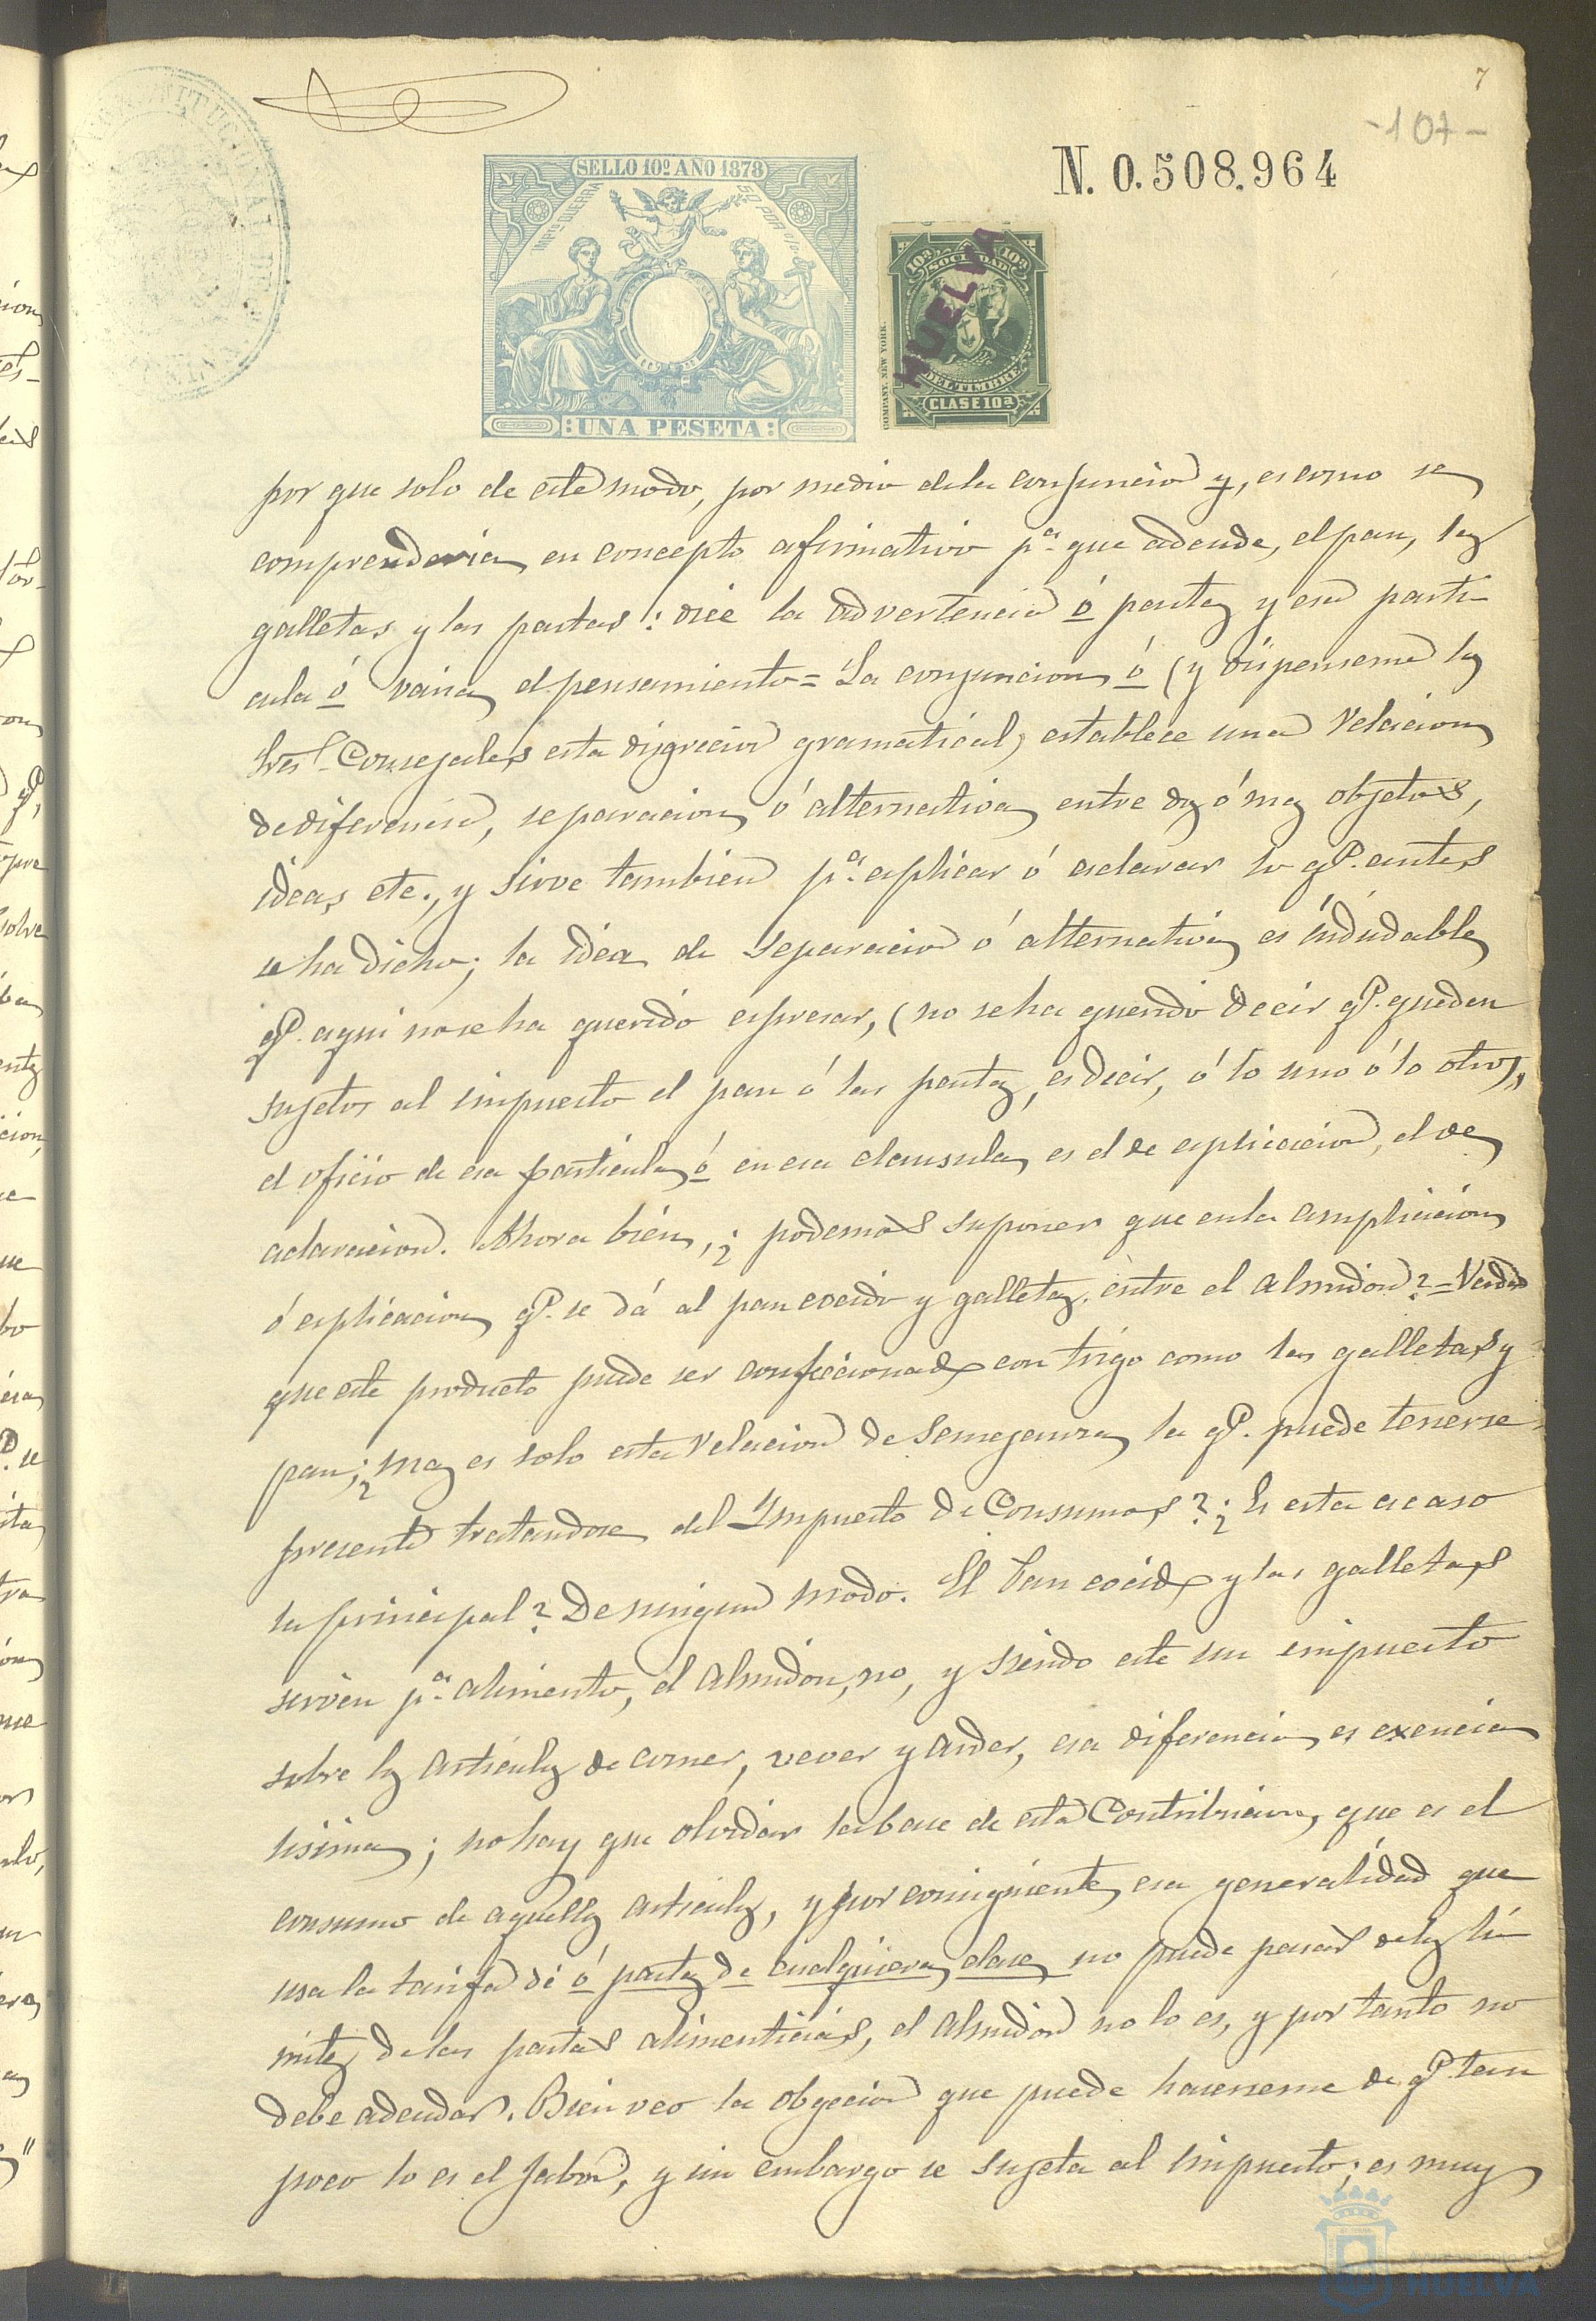 7
-107-
N. 0.508.964
SELLO 10º AÑO 1878
10ª 10ª
SOCIEDAD
HUELVA
DEL TIMBRE
CLASE 10ª
COMPANY. NEW YORK.
UNA PESETA
por que solo de este modo, por medio de la conjuncion y, es como se
comprenderia en concepto afirmativo pª que adeude, el pan, las
galletas y las pastas: dice la advertencia ó pastas y esa parti-
cula ó varia el pensamiento = La conjuncion ó (y dispenseme los
Sres. Consejales esta disgrecion gramatical) establece una relacion
de diferencia, separacion ó alternativa entre dos ó mas objetos,
ideas etc., y sirve tambien pª esplicar ó aclarar lo qe. antes
se ha dicho; la idea de separacion ó alternativa es indudable
qe. aqui no se ha querido espresar, (no se ha querido decir qe. queden
sujetos al impuesto el pan ó las pastas, es decir, ó lo uno ó lo otro),
el oficio de esa particula ó en esa clausula es el de esplicacion, el de
aclaracion. Ahora bien, ¿podemos suponer que en la ampliacion
ó esplicacion qe. se dá al pan cocido y galletas, entre el almidon? = Verdad
que este producto puede ser confeccionado con trigo como las galletas y
pan; ¿mas es solo esta relacion de semejanza la qe. puede tenerse
presente tratandose del Impuesto de Consumos? ¿Es esta acaso
la principal? De ningun modo. El Pan cocido y las galletas
sirven pª alimento, el almidon, no, y siendo este un impuesto
sobre los articulos de comer, vever y arder, esa diferencia es esencia
lisima; no hay que olvidar la base de esta Contribucion, que es el
consumo de aquellos articulos, y por consiguiente esa generalidad que
usa la tarifa de ó pastas de cualquiera clase no puede pasar de los li
mites de las pastas alimenticias, el almidon no lo es, y por tanto no
debe adeudar. Bien veo la obgecion que puede hacerseme de qe. tam
poco lo es el jabon, y sin embargo se sujeta al impuesto; es muy
HUELVA